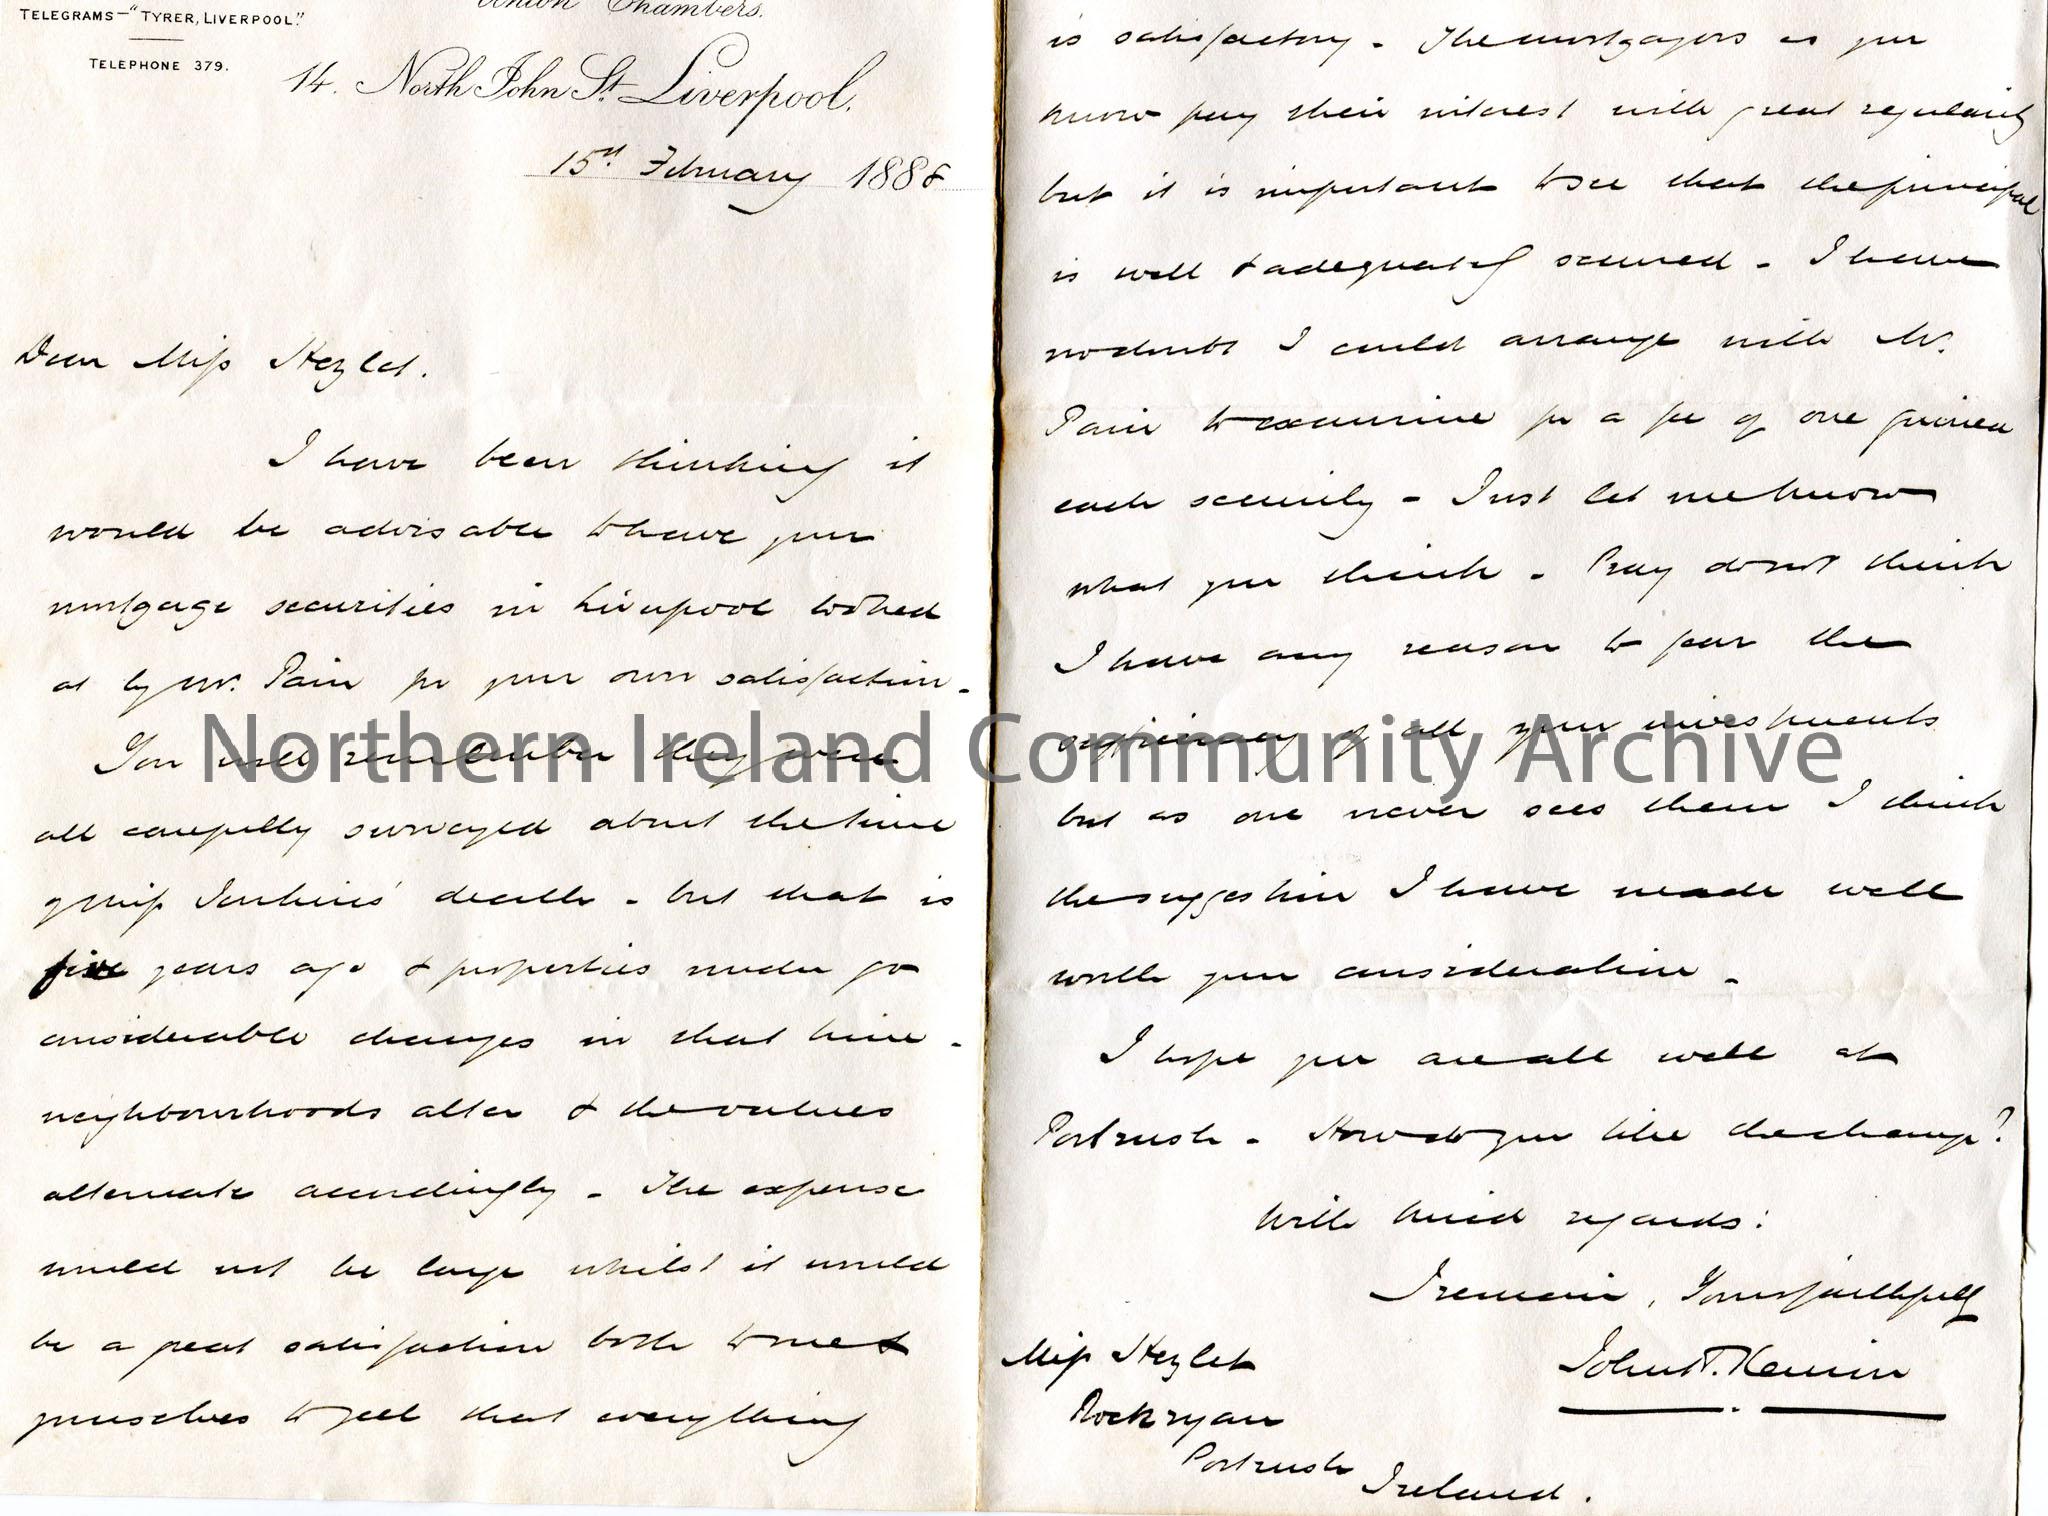 TELEGRAMS—"TYRER, LIVERPOOL."
TELEPHONE 379.
Union Chambers.
14. North John St. Liverpool.
15th February 1888
Dear Miss Hezlet.
I have been thinking it
would be advisable to have your
mortgage securities in Liverpool looked
at by Mr. Pain for your own satisfaction -
You will remember they were
all carefully surveyed about the time
of Miss Jenkins' death - but that is
five years ago & properties under go
considerable changes in that time -
neighbourhoods alter & the values
alternate accordingly - The expense
would not be large whilst it would
be a great satisfaction both to me &
yourselves to feel that everything
is satisfactory - The mortgagors as you
know pay their interest with great regularity
but it is important to see that the principal
is well & adequately secured - I have
no doubt I could arrange with Mr.
Pain to examine for a fee of one guinea
each security - Just let me know
what you think - Pray do not think
I have any reason to fear the
sufficiency of all your investments
but as one never sees them I think
the suggestion I have made well
worth your consideration -
I hope you are all well at
Portrush - How do you like the change?
With kind regards:
I remain, Yours faithfully
John T.
Miss Hezlet
Rockryan
Portrush
Ireland.
Northern Ireland Community Archive